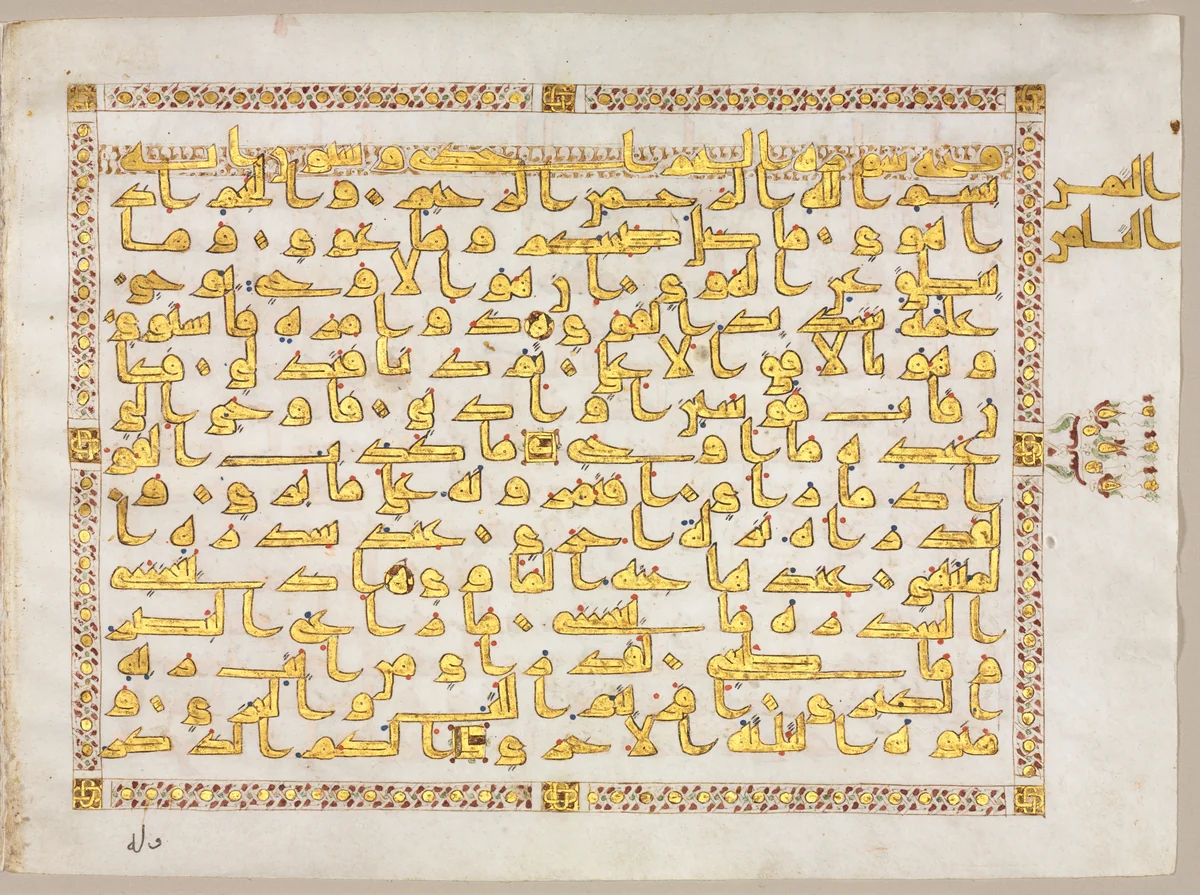 سورة النجم احدى وستون اية
بسم الله الرحمن الرحيم والنجم اذ
ا هوى ما ضل صاحبكم وما غوى وما
ينطق عن الهوى ان هو الا وحي يوحى
علمه شديد القوى ذو مرة فاستوى
وهو بالافق الاعلى ثم دنا فتدلى فكا
ن قاب قوسين او ادنى فاوحى الى
عبده ما اوحى ما كذب الفو
اد ما راى افتمرونه على ما يرى و
لقد راه نزلة اخرى عند سدرة ا
لمنتهى عندها جنة الماوى اذ يغشى
السدرة ما يغشى ما زاغ البصر
و ما طغى لقد راى من ايت ربه
الكبرى افريتم اللت والعزى و
منوه الثلثة الاخرى الكم الذكر
وله